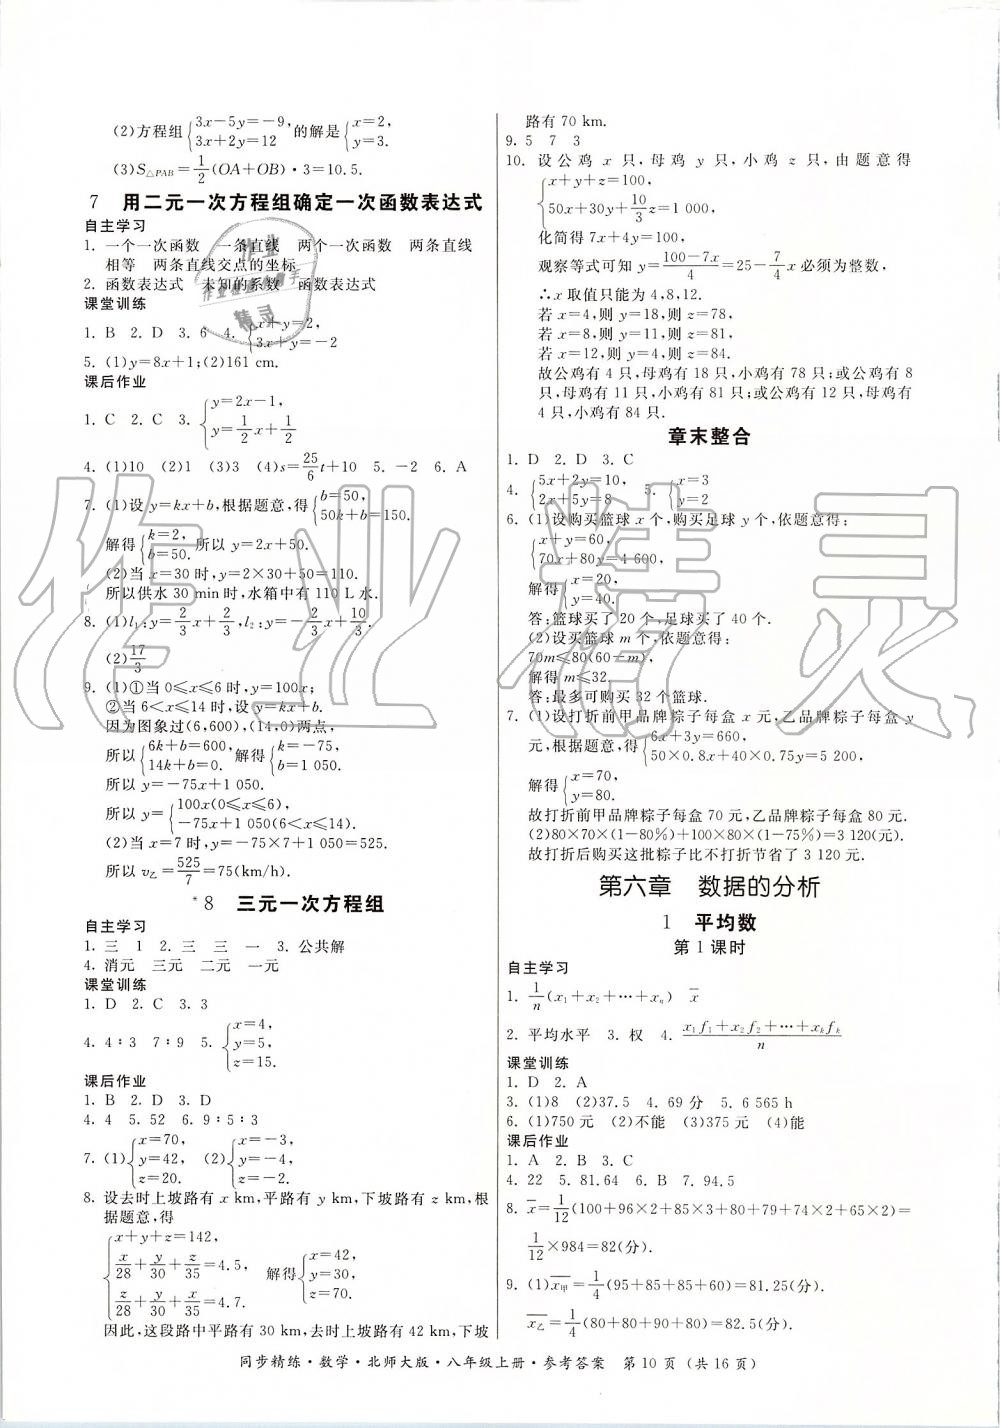 (2)方程组{3x-5y=-9, 3x+2y=12 的解是{x=2, y=3.
(3)S△PAB=1/2(OA+OB)·3=10.5.
7 用二元一次方程组确定一次函数表达式
自主学习
1. 一个一次函数 一条直线 两个一次函数 两条直线
相等 两条直线交点的坐标
2. 函数表达式 未知的系数 函数表达式
课堂训练
1. B 2. D 3. 6 4. {x+y=2, 3x+y=-2
5. (1)y=8x+1;(2)161 cm.
课后作业
1. C 2. C 3. {y=2x-1, y=1/2x+1/2
4. (1)10 (2)1 (3)3 (4)s=25/6t+10 5. -2 6. A
7. (1)设 y=kx+b,根据题意,得{b=50, 50k+b=150.
解得{k=2, b=50. 所以 y=2x+50.
(2)当 x=30 时,y=2×30+50=110.
所以供水 30 min时,水箱中有 110 L 水.
8. (1)l₁:y=2/3x+2/3,l₂:y=-1/3x+10/3.
(2)17/3
9. (1)①当 0≤x≤6 时,y=100x;
②当 6<x≤14 时,设 y=kx+b.
因为图象过(6,600),(14,0)两点,
所以{6k+b=600, 14k+b=0. 解得{k=-75, b=1 050.
所以 y=-75x+1 050.
所以 y={100x(0≤x≤6), -75x+1 050(6<x≤14).
(2)当 x=7 时,y=-75×7+1 050=525.
所以 v乙=525/7=75(km/h).
*8 三元一次方程组
自主学习
1. 三 1 2. 三 三 一 3. 公共解
4. 消元 三元 二元 一元
课堂训练
1. D 2. C 3. 3
4. 4∶3 7∶9 5. {x=4, y=5, z=15.
课后作业
1. B 2. D 3. D
4. 4 5. 52 6. 9∶5∶3
7. (1){x=70, y=42, z=20. (2){x=-3, y=-4, z=-2.
8. 设去时上坡路有 x km,平路有 y km,下坡路有 z km,根
据题意,得
{x+y+z=142, x/28+y/30+z/35=4.5, z/28+y/30+x/35=4.7. 解得{x=42, y=30, z=70.
因此,这段路中平路有 30 km,去时上坡路有 42 km,下坡
路有 70 km.
9. 5 7 3
10. 设公鸡 x 只,母鸡 y 只,小鸡 z 只,由题意得
{x+y+z=100, 50x+30y+10/3z=1 000,
化简得 7x+4y=100,
观察等式可知 y=(100-7x)/4=25-7/4x 必须为整数,
∴x 取值只能为 4,8,12.
若 x=4,则 y=18,则 z=78,
若 x=8,则 y=11,则 z=81,
若 x=12,则 y=4,则 z=84.
故公鸡有 4 只,母鸡有 18 只,小鸡有 78 只;或公鸡有 8
只,母鸡有 11 只,小鸡有 81 只;或公鸡有 12 只,母鸡有
4 只,小鸡有 84 只.
章末整合
1. D 2. D 3. C
4. {5x+2y=10, 2x+5y=8 5. {x=3, y=2
6. (1)设购买篮球 x 个,购买足球 y 个,依题意得:
{x+y=60, 70x+80y=4 600,
解得{x=20, y=40.
答:篮球买了 20 个,足球买了 40 个.
(2)设买篮球 m 个,依题意得:
70m≤80(60-m),
解得 m≤32.
答:最多可购买 32 个篮球.
7. (1)设打折前甲品牌粽子每盒 x 元,乙品牌粽子每盒 y
元,根据题意,得{6x+3y=660, 50×0.8x+40×0.75y=5 200,
解得{x=70, y=80.
故打折前甲品牌粽子每盒 70 元,乙品牌粽子每盒 80 元.
(2)80×70×(1-80%)+100×80×(1-75%)=3 120(元).
故打折后购买这批粽子比不打折节省了 3 120 元.
第六章 数据的分析
1 平均数
第 1 课时
自主学习
1. 1/n(x₁+x₂+…+xₙ) x̄
2. 平均水平 3. 权 4. (x₁f₁+x₂f₂+…+xₖfₖ)/n
课堂训练
1. D 2. A
3. (1)8 (2)37.5 4. 69 分 5. 6 565 h
6. (1)750 元 (2)不能 (3)375 元 (4)能
课后作业
1. A 2. B 3. C
4. 22 5. 81.64 6. B 7. 94.5
8. x̄=1/12(100+96×2+85×3+80+79+74×2+65×2)=
1/12×984=82(分).
9. (1)x̄甲=1/4(95+85+85+60)=81.25(分).
x̄乙=1/4(80+80+90+80)=82.5(分).
同步精练·数学·北师大版·八年级上册·参考答案 第 10 页 (共 16 页)
作业精灵